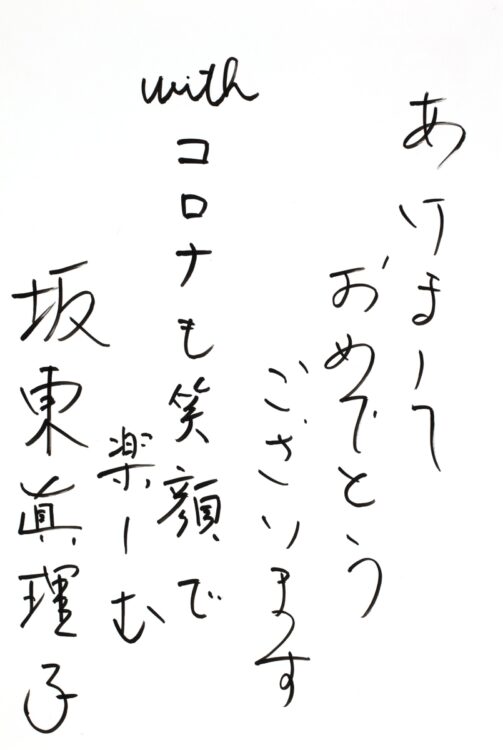 あけまして
おめでとう
ございます
withコロナも笑顔で
楽しむ
坂東眞理子